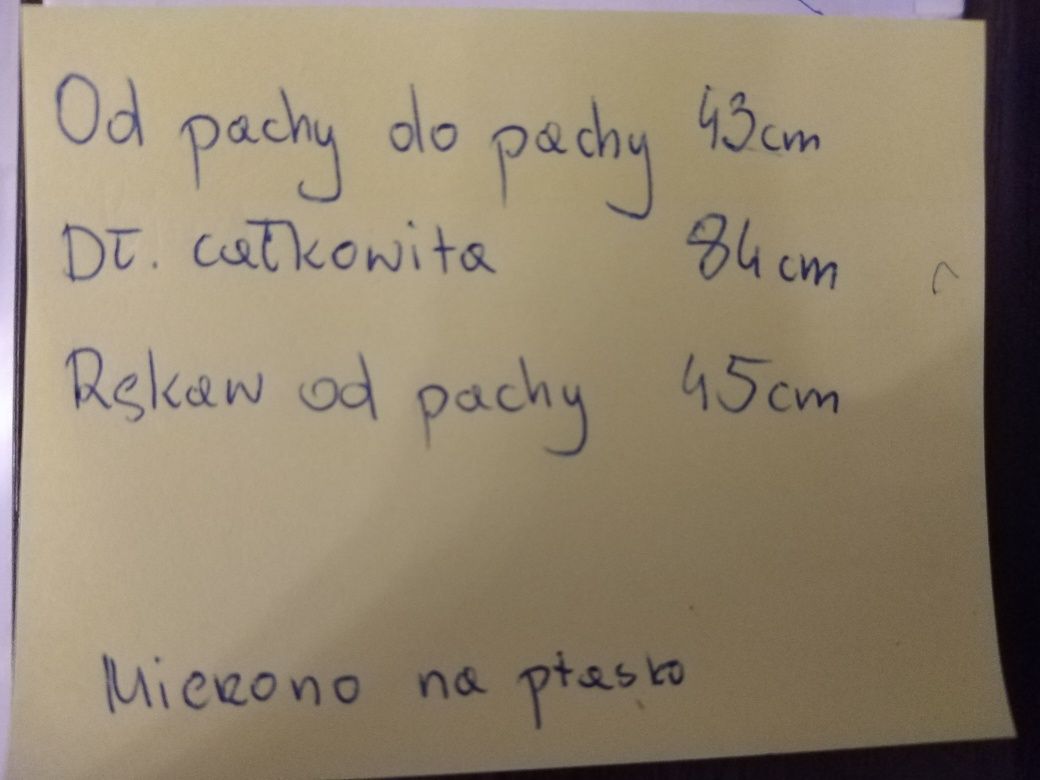 Od pachy do pachy 43cm
Dł. całkowita 84cm
Rękaw od pachy 45cm
Mierzono na płasko